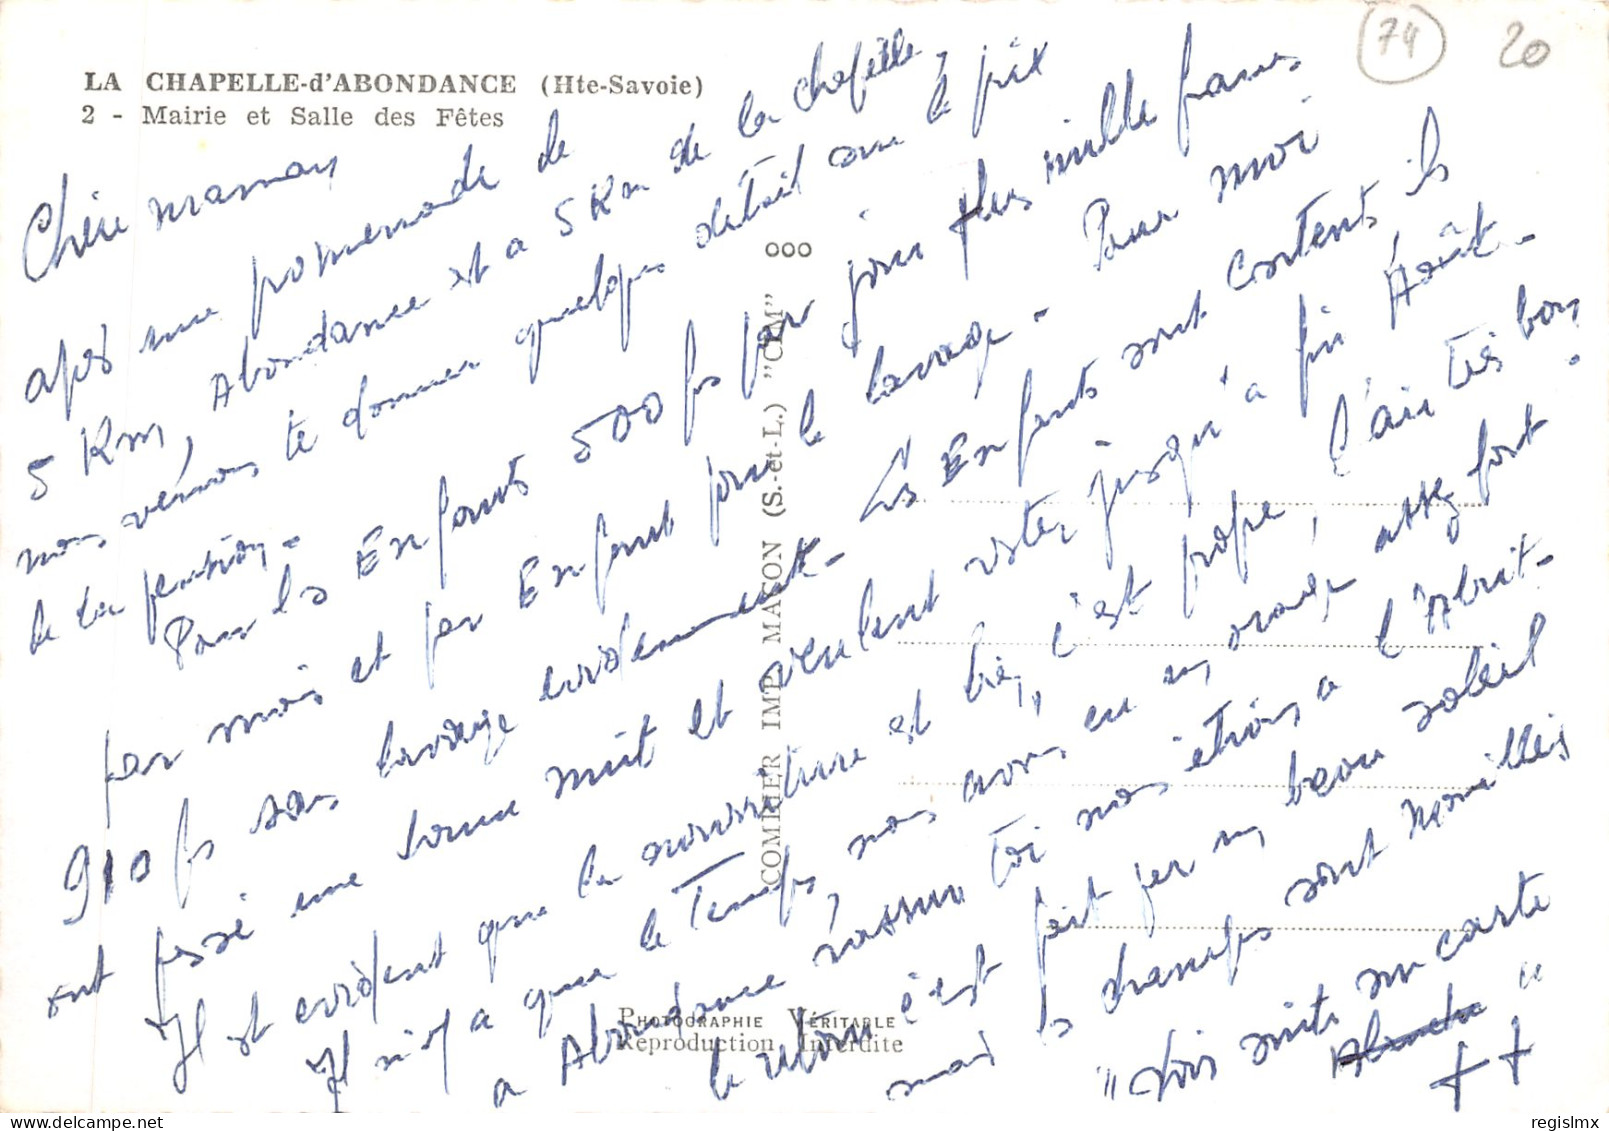 LA CHAPELLE-d'ABONDANCE (Hte-Savoie)
2 - Mairie et Salle des Fêtes
74
20
Chère maman
après une promenade de
5 Km, Abondance est a 5 Km de la chapelle,
nous venons te donner quelques détail sur le prix
de la pension.
Pour les Enfants 500 frs par jour plus mille francs
par mois et par Enfant pour le lavage. Pour moi
910 frs sans lavage evidemment. Les Enfants sont contents ils
ont passé une bonne nuit et veulent rester jusqu'a fin Août.
Il est evident que la nourriture est bien, c'est propre, l'air très bon.
Il n'y a que le Temps, nous avons eu un orage assez fort
a Abondance rassure toi nous étions a l'Abrit.
le retour c'est fait par un beau soleil
mais les champs sont mouillés
"Vois suite sur carte
Abondance "
++
COMBIER IMP. MACON (S.-et-L.) "CIM"
PHOTOGRAPHIE VÉRITABLE
Reproduction Interdite
regislmx